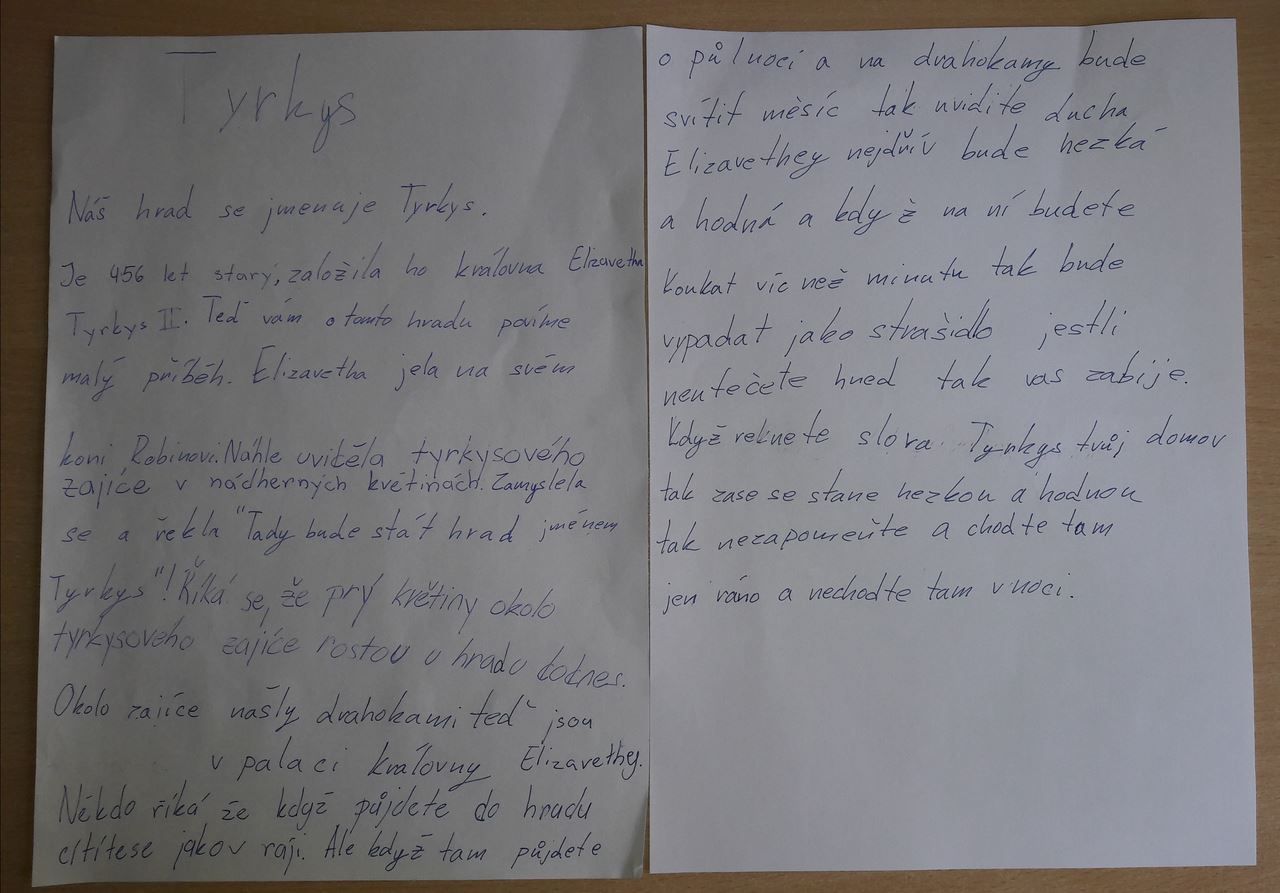 Tyrkys
Náš hrad se jmenuje Tyrkys.
Je 456 let starý, založila ho královna Elizavetha
Tyrkys II. Teď vám o tomto hradu povíme
malý příběh. Elizavetha jela na svém
koni Robinovi. Náhle uviděla tyrkysového
zajíce v nádherných květinách. Zamyslela
se a řekla "Tady bude stát hrad jménem
Tyrkys"! Říká se, že prý květiny okolo
tyrkysového zajíce rostou u hradu dodnes.
Okolo zajíce našly drahokami teď jsou
v palaci královny Elizavethey.
Někdo říká že když půjdete do hradu
cítítese jakov ráji. Ale když tam půjdete
o půlnoci a na drahokamy bude
svítit měsíc tak uvidíte ducha
Elizavethey nejdřív bude hezká
a hodná a když na ní budete
koukat víc než minutu tak bude
vypadat jako strašidlo jestli
neutečete hned tak vas zabije.
Když reknete slova Tyrkys tvůj domov
tak zase se stane hezkou a hodnou
tak nezapomeňte a choďte tam
jen ráno a nechoďte tam v noci.